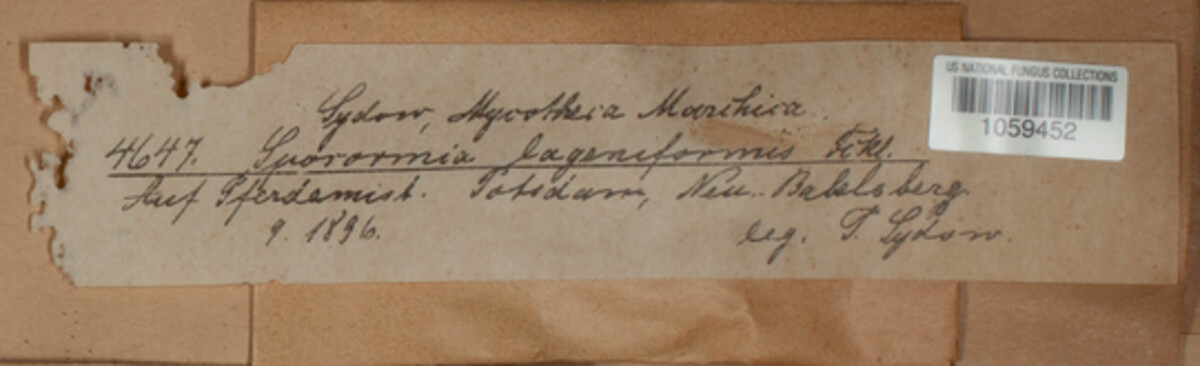 Sydow, Mycotheca Marchica.
4647. Sporormia lageniformis Fckl.
Auf Pferdemist. Potsdam, Neu-Babelsberg.
9. 1896. leg. P. Sydow.
US NATIONAL FUNGUS COLLECTIONS
1059452